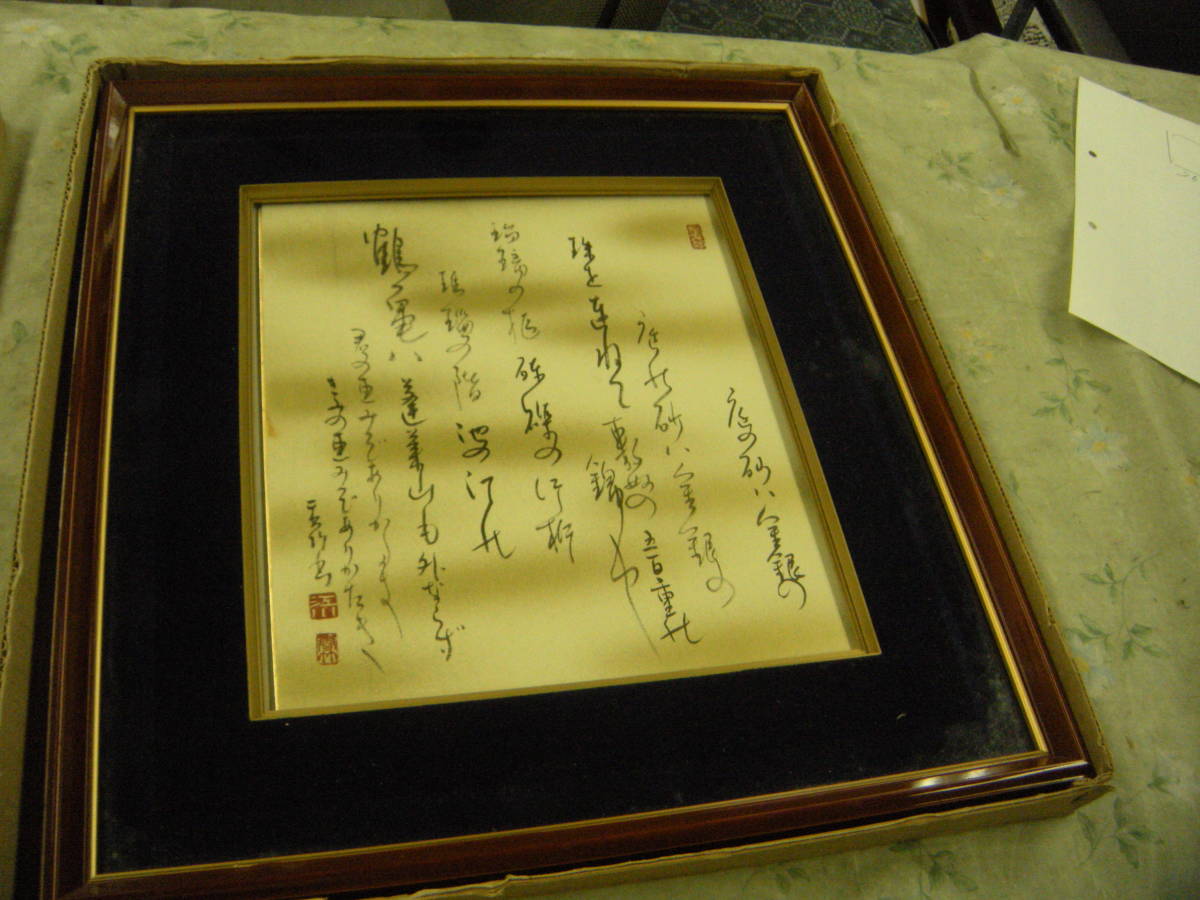 庭の砂ハ金銀の
庭の砂ハ金銀の
珠を連ねて敷妙の五百重の
錦や
瑠璃の枢硨磲の行桁
瑪瑙の階池の汀の
鶴亀ハ蓬莱山も外ならず
君の恵みぞありがたき
きみの恵みぞありがたき